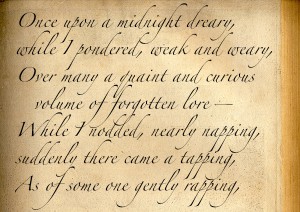 Once upon a midnight dreary,
while I pondered, weak and weary,
Over many a quaint and curious
volume of forgotten lore —
While I nodded, nearly napping,
suddenly there came a tapping,
As of some one gently rapping,